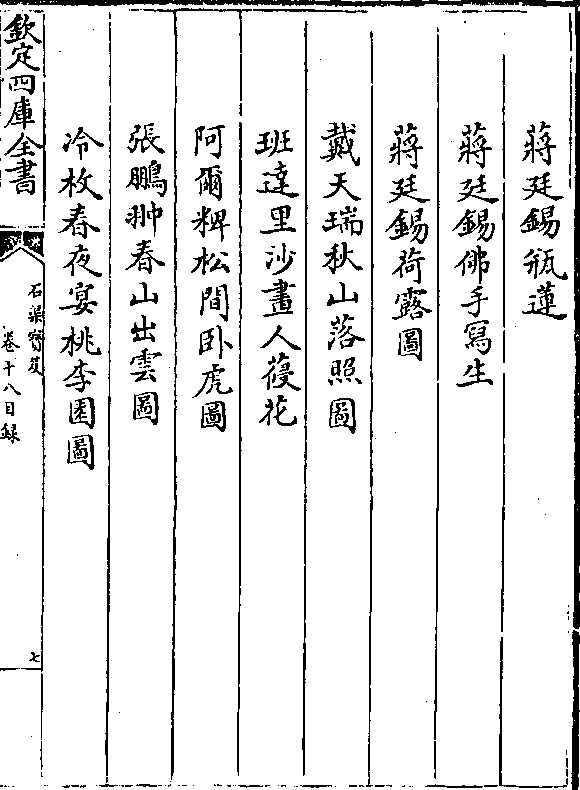 蔣廷錫瓶蓮
蔣廷錫佛手寫生
蔣廷錫荷露圖
戴天瑞秋山落照圖
班達里沙畫人葠花
阿爾稗松間卧虎圖
張鵬翀春山出雲圖
冷枚春夜宴桃李園圖
欽定四庫全書
石渠寶笈
卷十八目錄
七